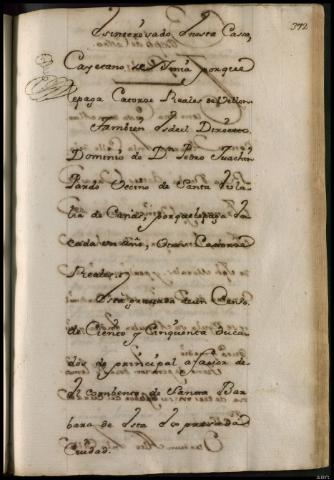 392
Es interesado En esta Casa,
Cayetano de Thomá porque
lepaga Catorze Reales de Vellon.
Tambien Es del Directo
Dominio de Dn. Pedro Juachin
Pardo Vecino de Santa Eula
lia de Cañas, porque le paga En
cada un año, Otros Catorze
Reales.
Esta gravada de un Censo
de Ciento y Cinquenta Duca
dos de principal a favor de
el combento de Santa Bar
bara de Esta Expresada
Ciudad.